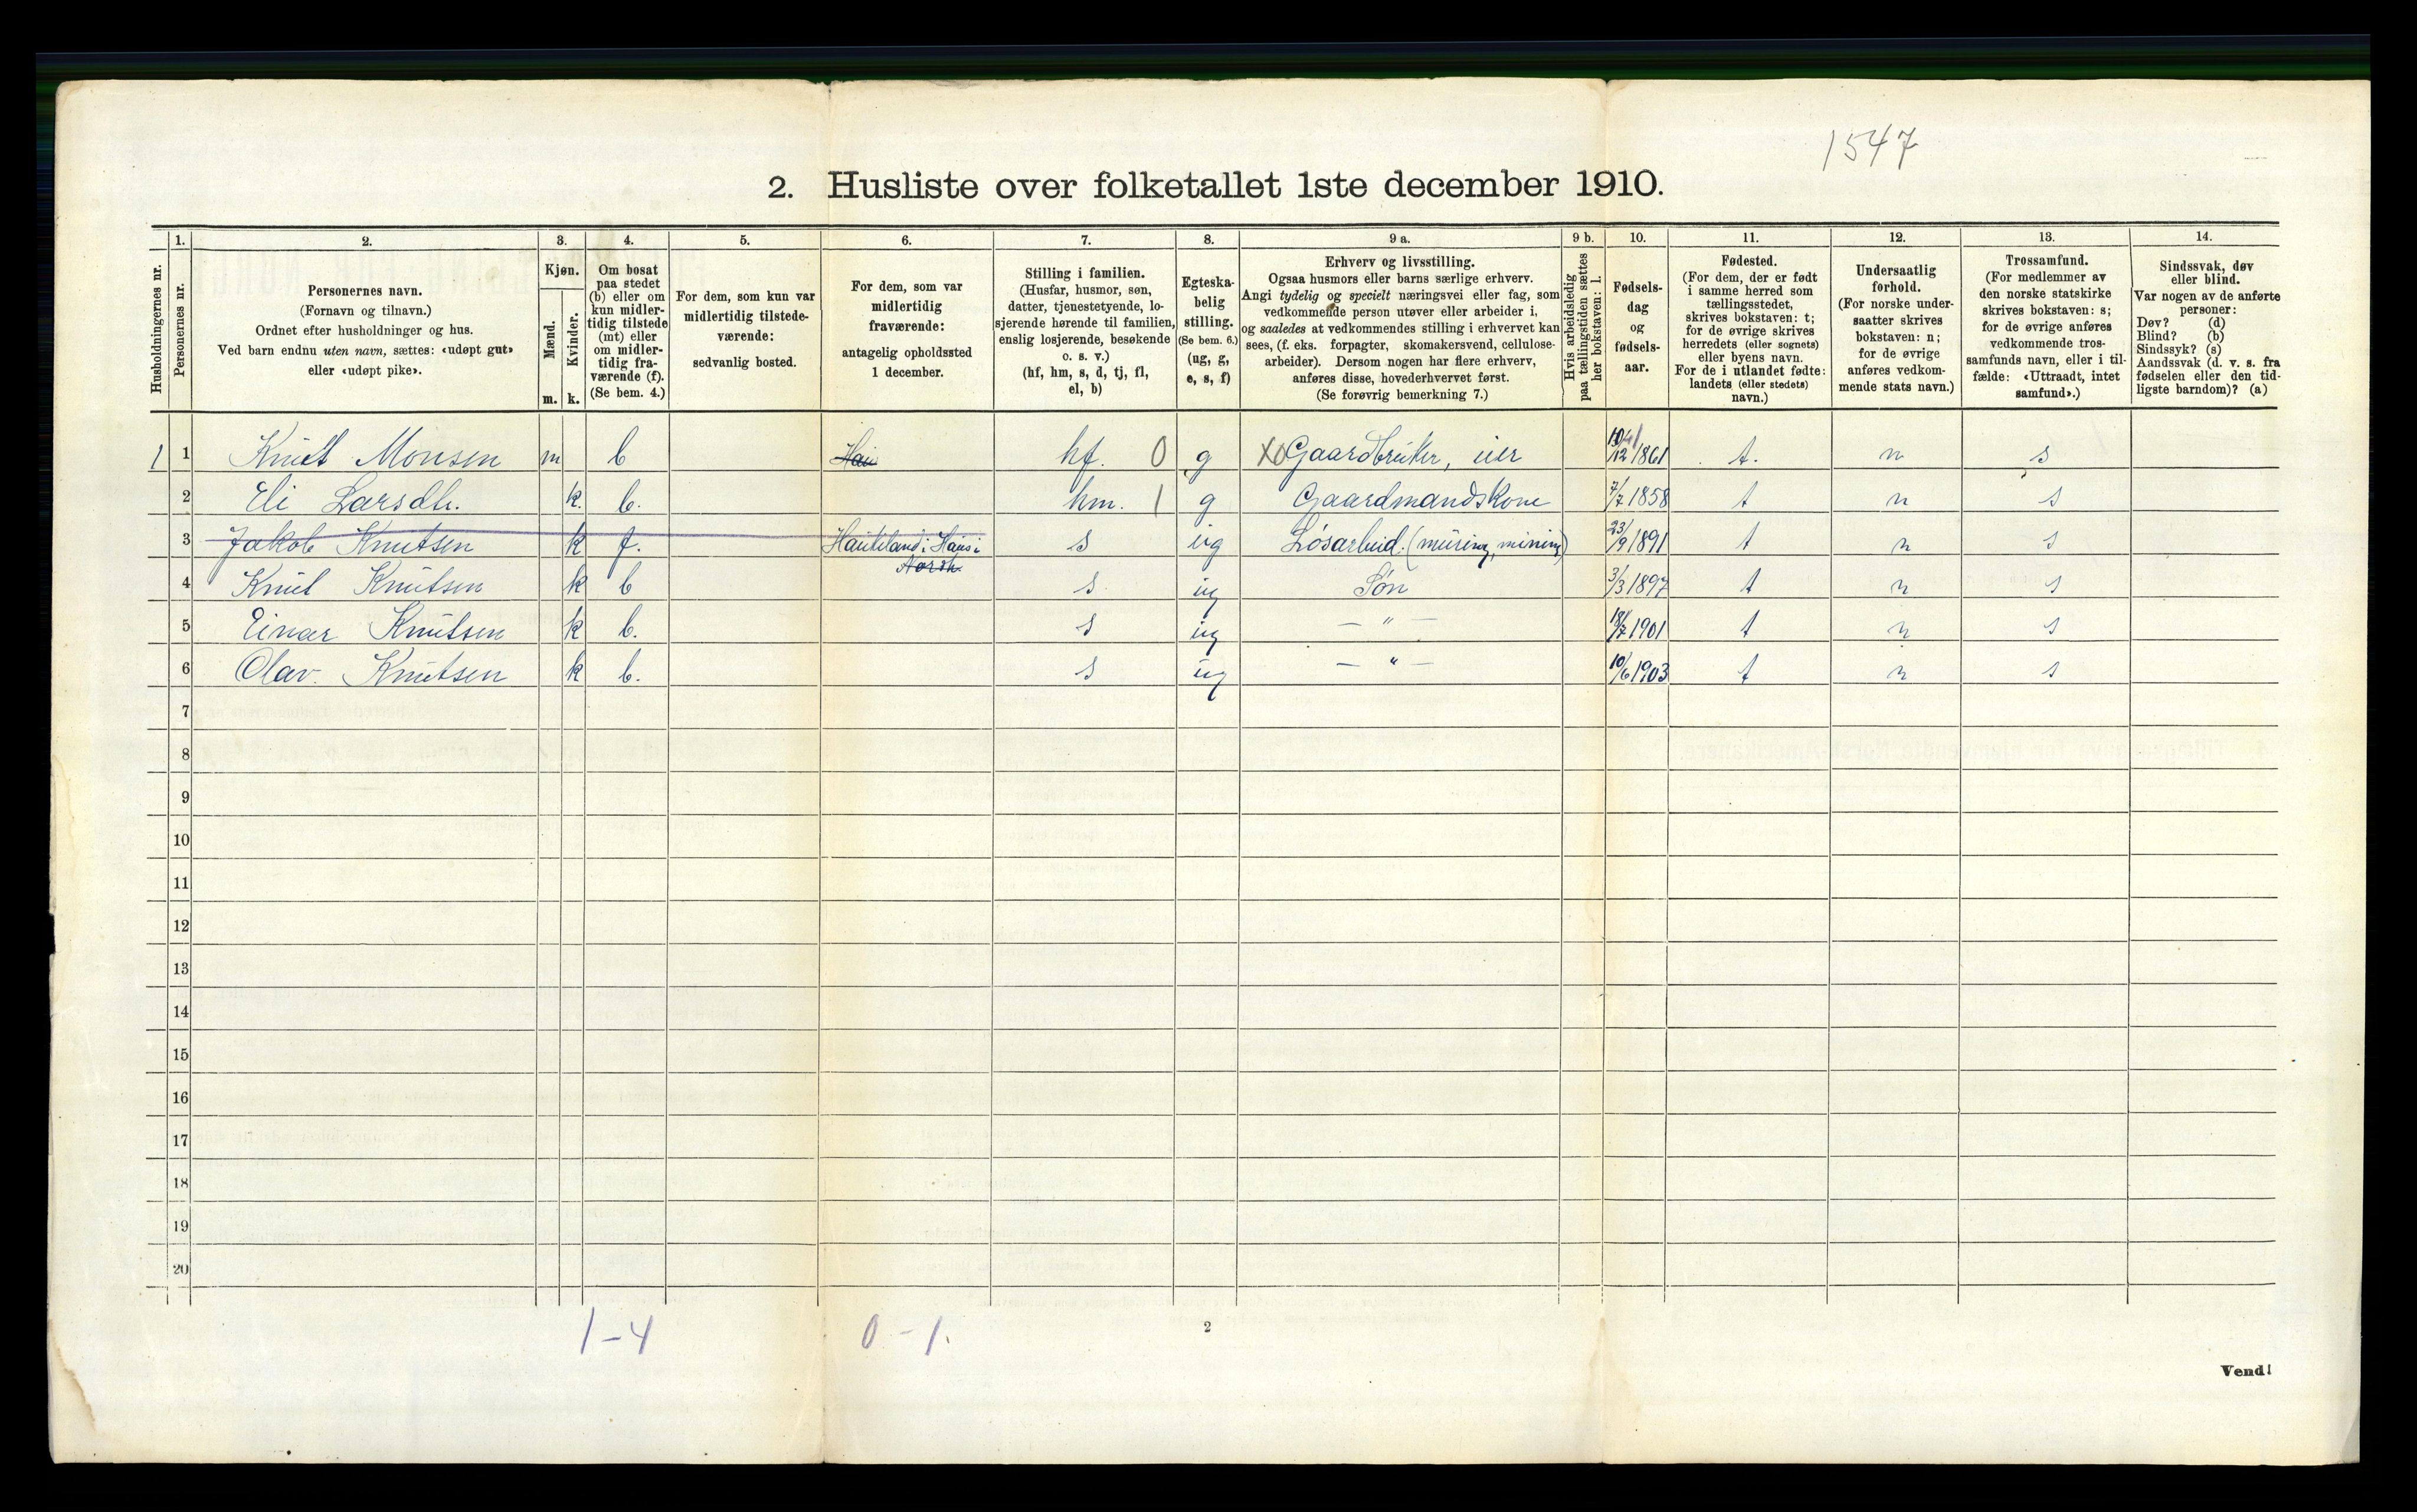 1547
2. Husliste over folketallet 1ste december 1910.
Husholdningernes nr.
1.
Personernes nr.
2.
Personernes navn.
(Fornavn og tilnavn.)
Ordnet efter husholdninger og hus.
Ved barn endnu uten navn, sættes: «udøpt gut»
eller «udøpt pike».
3.
Kjøn.
Mænd.
Kvinder.
m. k.
4.
Om bosat
paa stedet
(b) eller om
kun midler-
tidig tilstede
(mt) eller
om midler-
tidig fra-
værende (f).
(Se bem. 4.)
5.
For dem, som kun var
midlertidig tilstede-
værende:
sedvanlig bosted.
6.
For dem, som var
midlertidig
fraværende:
antagelig opholdssted
1 december.
7.
Stilling i familien.
(Husfar, husmor, søn,
datter, tjenestetyende, lo-
sjerende hørende til familien,
enslig losjerende, besøkende
o. s. v.)
(hf, hm, s, d, tj, fl,
el, b)
8.
Egteska-
belig
stilling.
(Se bem. 6.)
(ug, g,
e, s, f)
9 a.
Erhverv og livsstilling.
Ogsaa husmors eller barns særlige erhverv.
Angi tydelig og specielt næringsvei eller fag, som
vedkommende person utøver eller arbeider i,
og saaledes at vedkommendes stilling i erhvervet kan
sees, (f. eks. forpagter, skomakersvend, cellulose-
arbeider). Dersom nogen har flere erhverv,
anføres disse, hovederhvervet først.
(Se forøvrig bemerkning 7.)
9 b.
Hvis arbeidsledig
paa tællingstiden sættes
her bokstaven: l.
10.
Fødsels-
dag
og
fødsels-
aar.
11.
Fødested.
(For dem, der er født
i samme herred som
tællingsstedet,
skrives bokstaven: t;
for de øvrige skrives
herredets (eller sognets)
eller byens navn.
For de i utlandet fødte:
landets (eller stedets)
navn.)
12.
Undersaatlig
forhold.
(For norske under-
saatter skrives
bokstaven: n;
for de øvrige
anføres vedkom-
mende stats navn.)
13.
Trossamfund.
(For medlemmer av
den norske statskirke
skrives bokstaven: s;
for de øvrige anføres
vedkommende tros-
samfunds navn, eller i til-
fælde: «Uttraadt, intet
samfund».)
14.
Sindssvak, døv
eller blind.
Var nogen av de anførte
personer:
Døv? (d)
Blind? (b)
Sindssyk? (s)
Aandssvak (d. v. s. fra
fødselen eller den tid-
ligste barndom)? (a)
1 1 Knut Monsen m b Hau hf. 0 g X0 Gaardbruker, eier 1861 t. n s
2 Eli Larsdtr. k. b. hm. 1 g Gaardmandskone 7/7 1858 t n s
3 Jakob Knutsen k f. Haukeland i Haus i s ug Løsarbeid. (muring, minering) 23/9 1891 t n s
4 Knut Knutsen k b s ug Søn 3/3 1897 t n s
5 Einar Knutsen k b. s ug — " — 18/7 1901 t n s
6 Olav. Knutsen k b. s ug — " — 10/6 1903 t n s
7
8
9
10
11
12
13
14
15
16
17
18
19
20
1-4 0-1.
2
Vend!